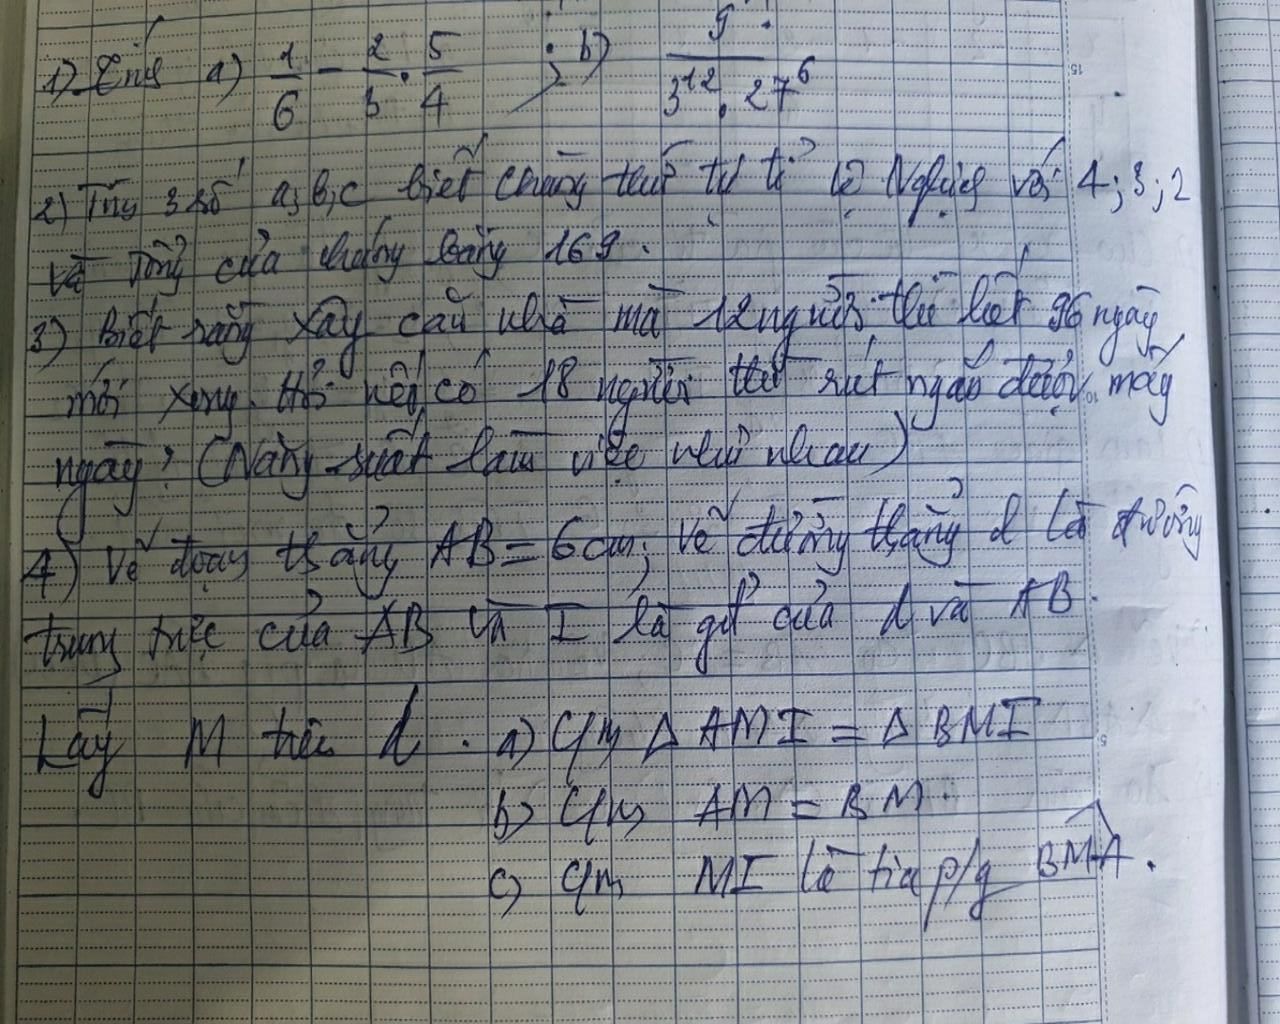 1) Tính a) 1/6 - 2/3 . 5/4 ; b) 9 / 3^12 . 27^6
2) Tìm 3 số a, b, c biết chúng thứ tự tỉ lệ Nghịch với 4; 3; 2
và Tổng của chúng bằng 169.
3) Biết rằng xây cái nhà mà 12 người thì hết 96 ngày
mới xong. Hỏi nếu có 18 người thì rút ngắn được mấy
ngày? (Năng suất làm việc như nhau)
4) Vẽ đoạn thẳng AB = 6cm; vẽ đường thẳng d là đường
trung trực của AB và I là gđ của d và AB.
Lấy M trên d. a) C/m Δ AMI = Δ BMI
b) C/m AM = BM.
c) C/m MI là tia p/g BMA.